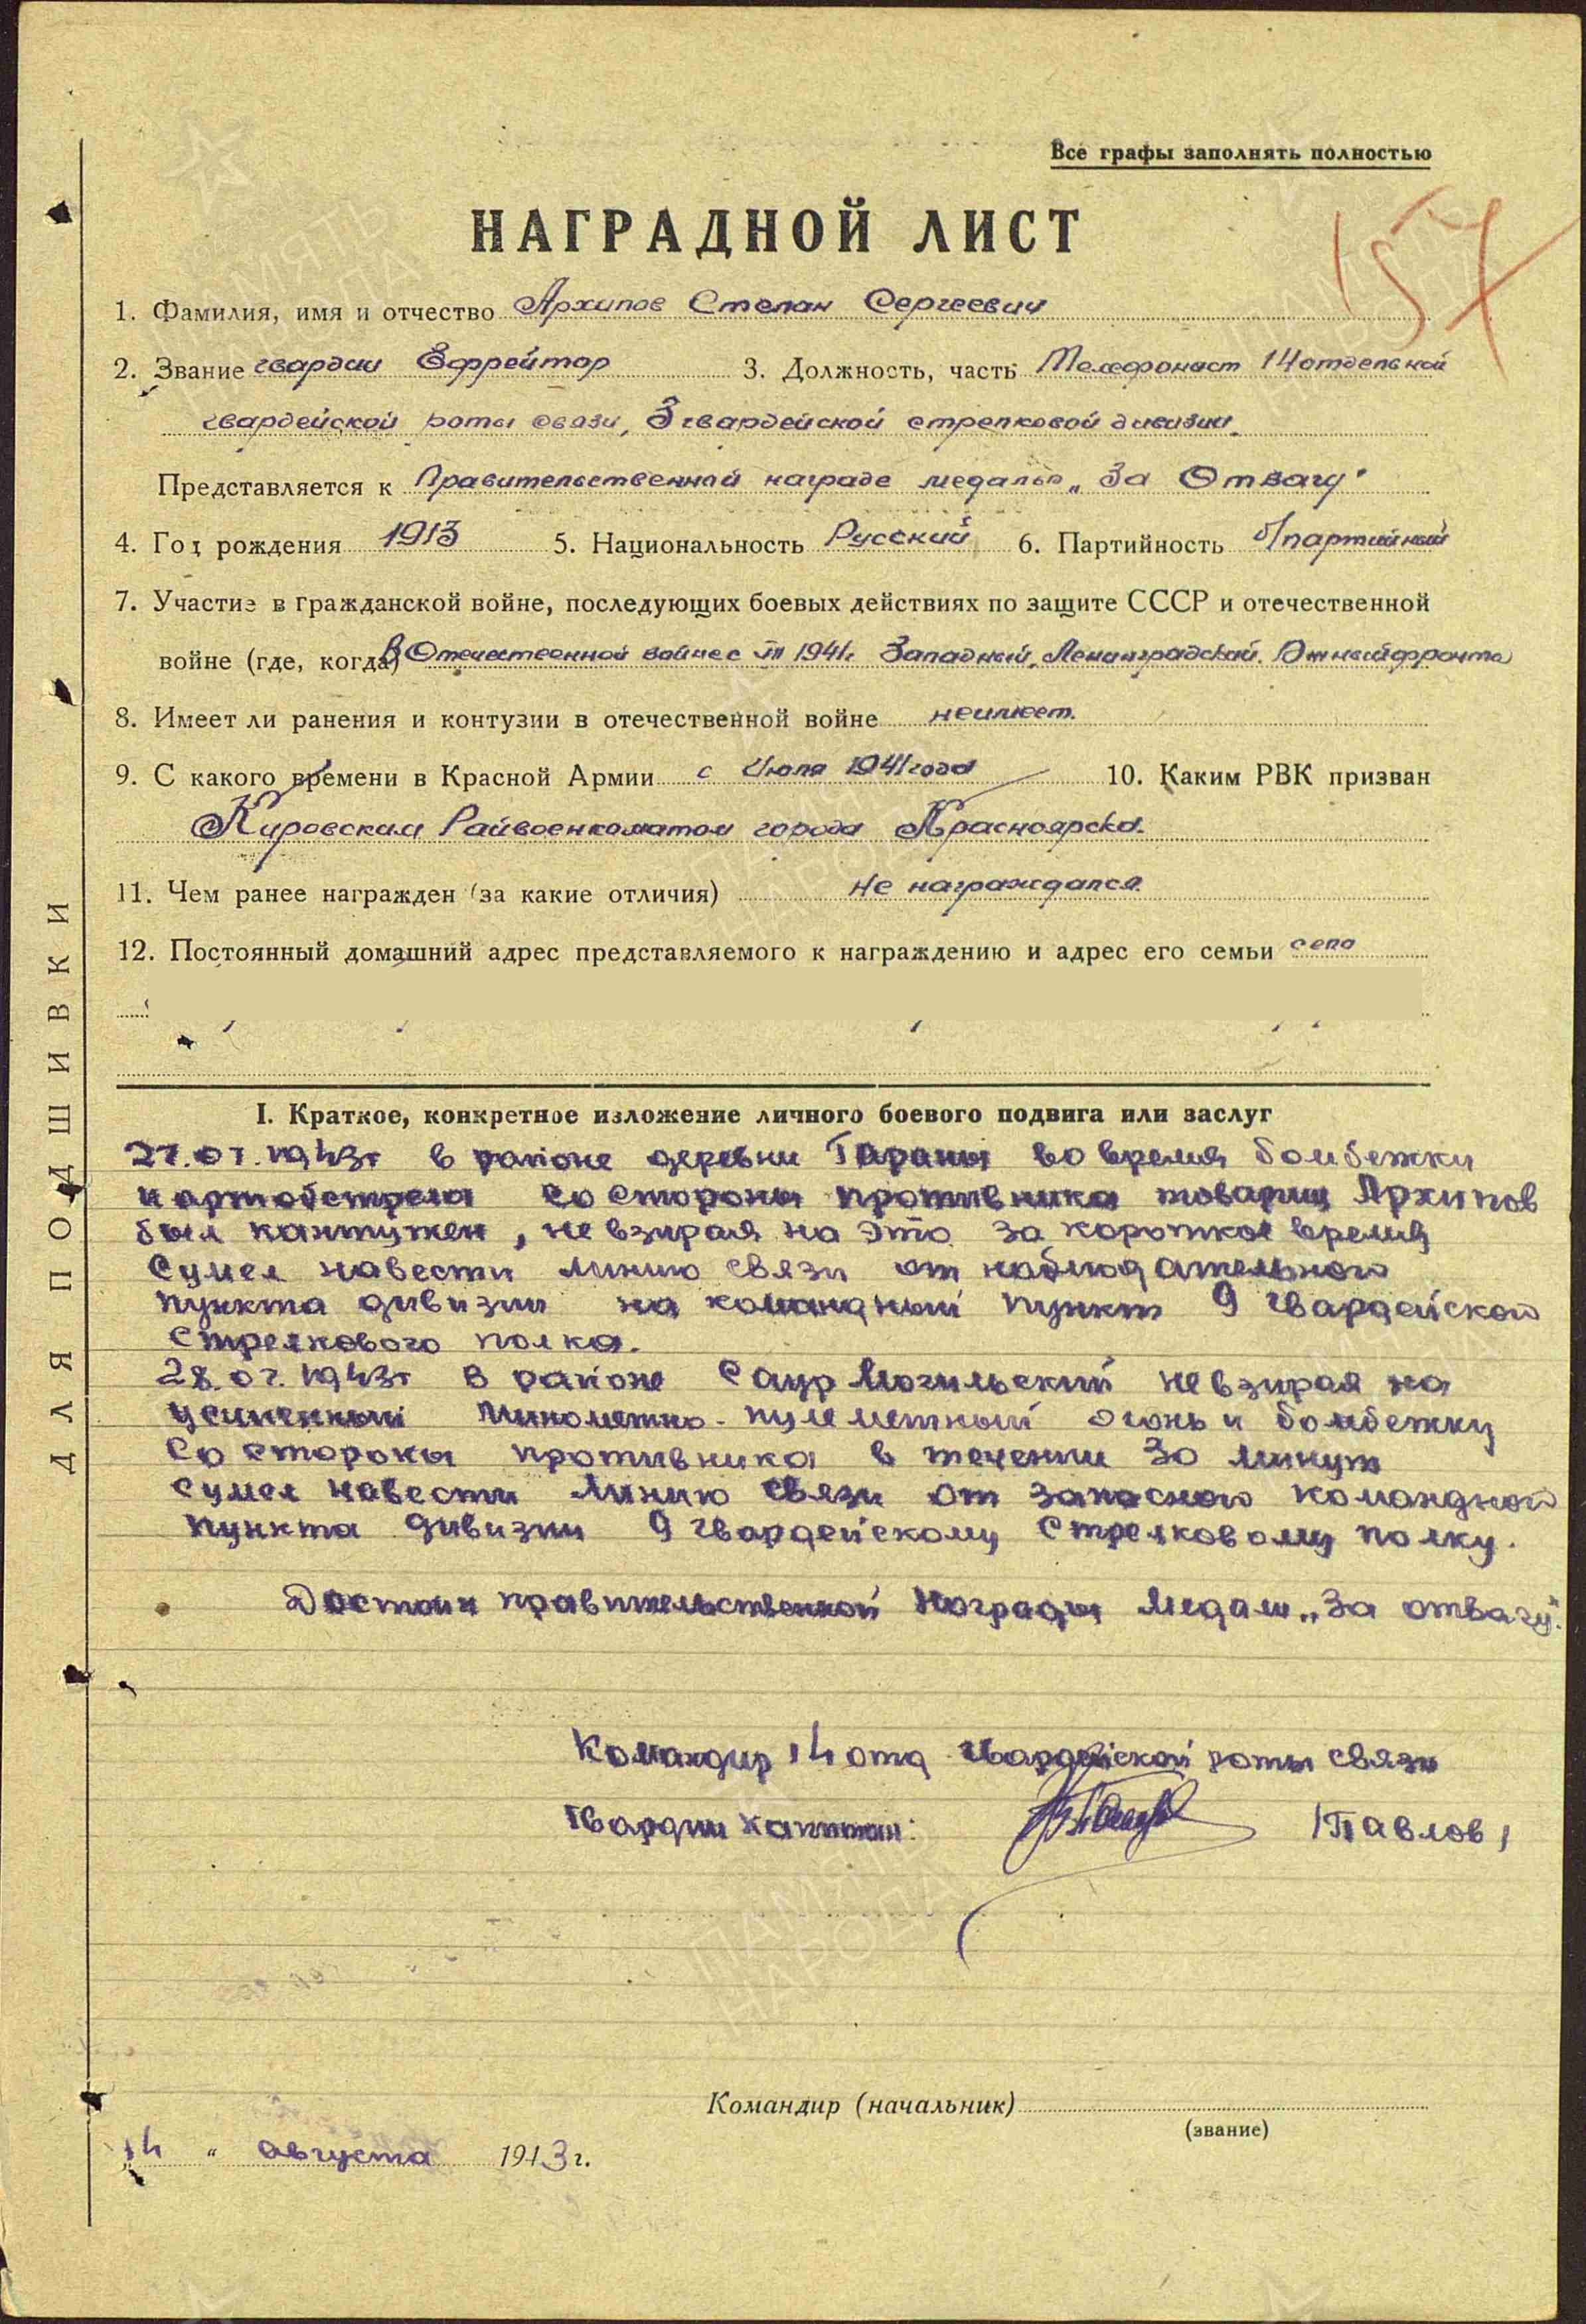 Все графы заполнять полностью
157
НАГРАДНОЙ ЛИСТ
1. Фамилия, имя и отчество Архипов Степан Сергеевич
2. Звание гвардии Ефрейтор 3. Должность, часть Телефонист 14 отдельной
гвардейской роты связи, 3 гвардейской стрелковой дивизии.
Представляется к Правительственной награде медалью „За Отвагу"
4. Год рождения 1913 5. Национальность Русский 6. Партийность б/партийный
7. Участие в гражданской войне, последующих боевых действиях по защите СССР и отечественной
войне (где, когда) в Отечественной войне с VII 1941г. Западный, Ленинградский, Южный фронта
8. Имеет ли ранения и контузии в отечественной войне не имеет.
9. С какого времени в Красной Армии с Июля 1941 года 10. Каким РВК призван
Кировским Райвоенкоматом города Красноярска.
11. Чем ранее награжден (за какие отличия) Не награждался.
12. Постоянный домашний адрес представляемого к награждению и адрес его семьи село
I. Краткое, конкретное изложение личного боевого подвига или заслуг
27.07.1943г в районе деревни Гараны во время бомбежки
и артобстрела со стороны противника товарищ Архипов
был кантужен, не взирая на это за короткое время
сумел навести линию связи от наблюдательного
пункта дивизии на командный пункт 9 гвардейской
стрелкового полка.
28.07.1943г в районе Саур Могильский невзирая на
усиленный минометно-пулеметный огонь и бомбежку
со стороны противника в течении 30 минут
сумел навести линию связи от запасного командного
пункта дивизии 9 гвардейскому стрелковому полку.
Достоин правительственной награды медали „За отвагу".
Командир 14 отд гвардейской роты связи
Гвардии капитан: /Павлов/
Командир (начальник)
(звание)
„14" августа 1943 г.
ДЛЯ ПОДШИВКИ
ПАМЯТЬ
НАРОДА